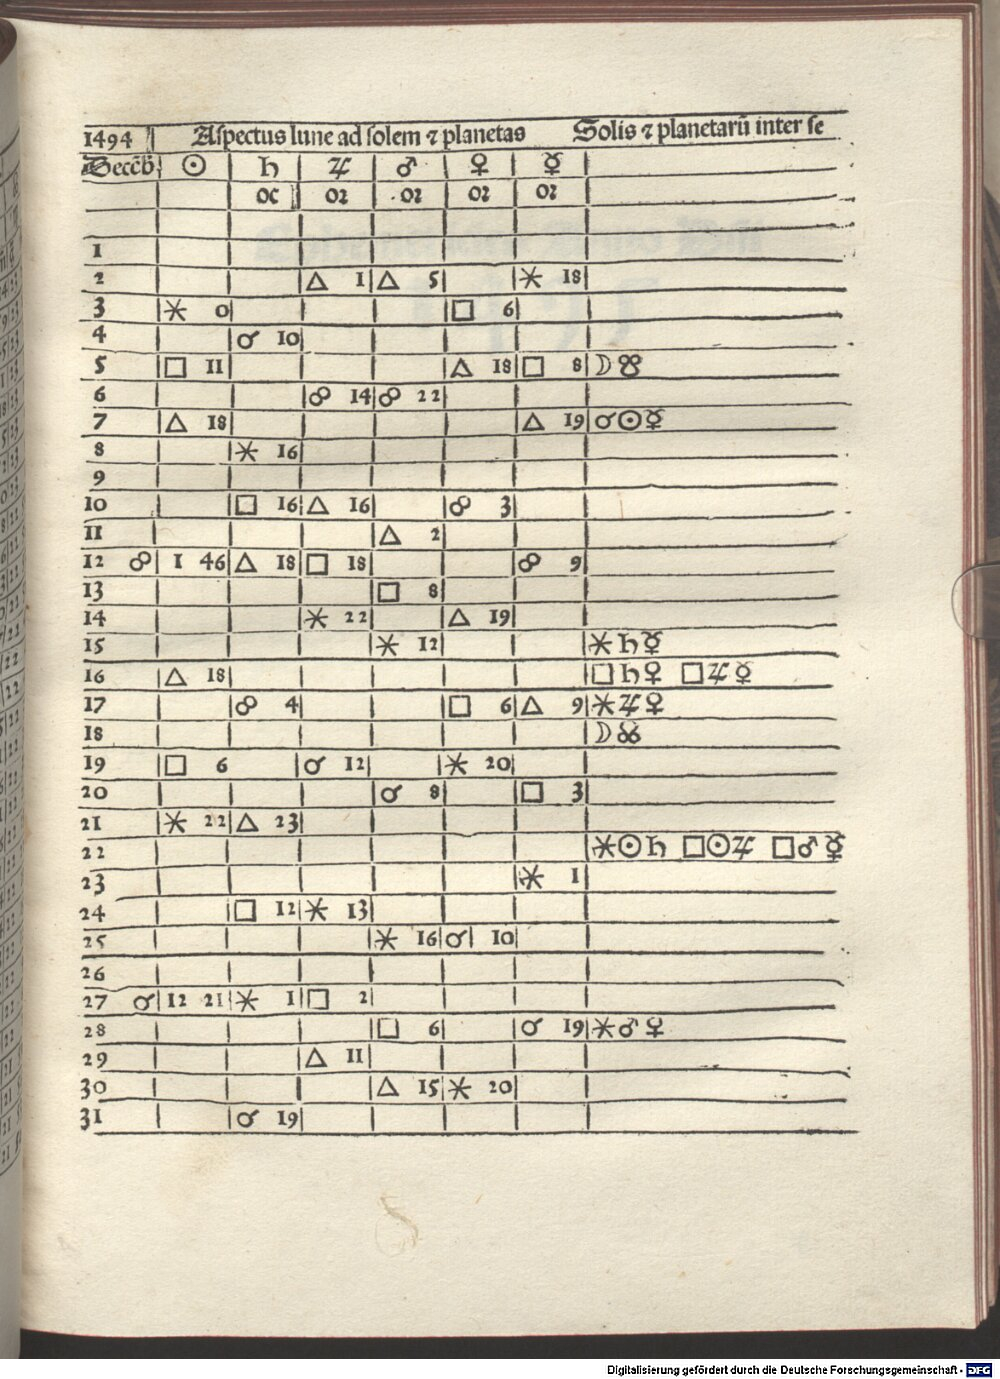 1494 Aspectus lune ad solem ⁊ planetas Solis ⁊ planetarū inter se
Decēb ☉ ♄ ♃ ♂ ♀ ☿
oc or or or or
1
2 △ 1 △ 5 ⚹ 18
3 ⚹ 0 □ 6
4 ☌ 10
5 □ 11 △ 18 □ 8 ☽ ☋
6 ☍ 14 ☍ 22
7 △ 18 △ 19 ☌ ☉ ☿
8 ⚹ 16
9
10 □ 16 △ 16 ☍ 3
11 △ 2
12 ☍ 1 46 △ 18 □ 18 ☍ 9
13 □ 8
14 ⚹ 22 △ 19
15 ⚹ 12 ⚹ ♄ ☿
16 △ 18 □ ♄ ♀ □ ♃ ☿
17 ☍ 4 □ 6 △ 9 ⚹ ♃ ♀
18 ☽ ☊
19 □ 6 ☌ 12 ⚹ 20
20 ☌ 8 □ 3
21 ⚹ 22 △ 23
22 ⚹ ☉ ♄ □ ☉ ♃ □ ♂ ☿
23 ⚹ 1
24 □ 12 ⚹ 13
25 ⚹ 16 ☌ 10
26
27 ☌ 12 21 ⚹ 1 □ 2
28 □ 6 ☌ 19 ⚹ ♂ ♀
29 △ 11
30 △ 15 ⚹ 20
31 ☌ 19
Digitalisierung gefördert durch die Deutsche Forschungsgemeinschaft - DFG